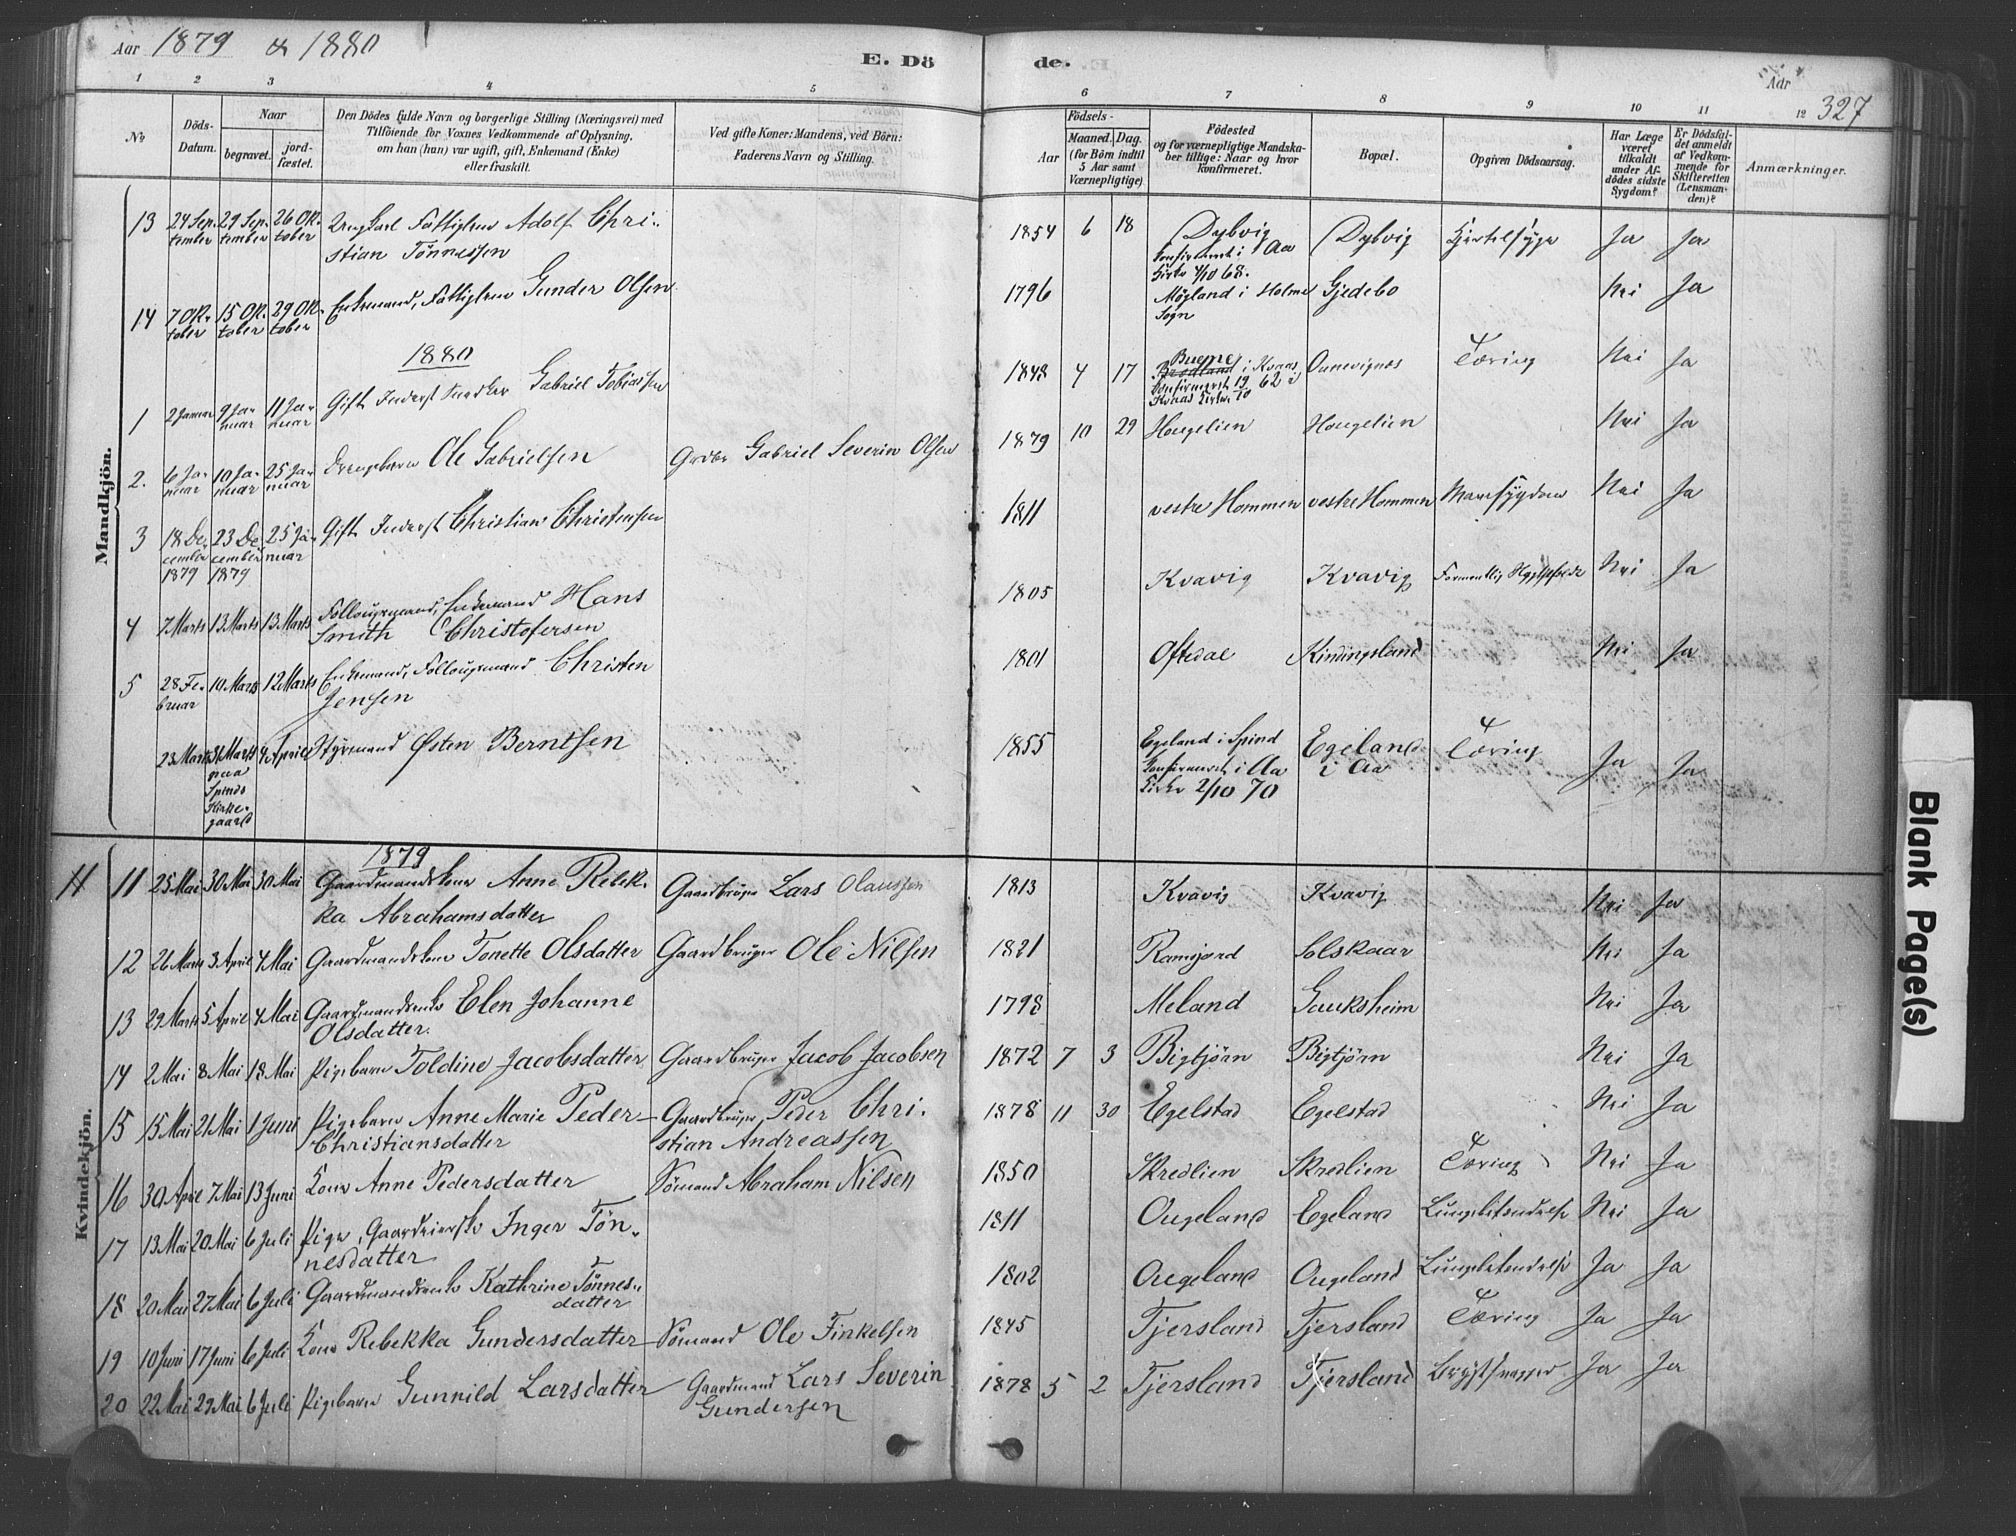 Aar 1879 & 1880
E. Dö de.
Aar
327
1 2 3 4 5 6 7 8 9 10 11 12
No
Döds-Datum.
Naar
begravet.
jord-fæstet.
Den Dödes fulde Navn og borgerlige Stilling (Næringsvei) med
Tilföiende for Voxnes Vedkommende af Oplysning,
om han (hun) var ugift, gift, Enkemand (Enke)
eller fraskilt.
Ved gifte Koner: Mandens, ved Börn:
Faderens Navn og Stilling.
Födsels-
Aar
Maaned. Dag.
(for Börn indtil
5 Aar samt
Værnepligtige)
Födested
og for værnepligtige Mandska-
ber tillige: Naar og hvor
konfirmeret.
Bopæl.
Opgiven Dödsaarsag.
Har Læge
været
tilkaldt
under Af-
dödes sidste
Sygdom?
Er Dödsfal-
det anmeldt
af Vedkom-
mende for
Skifteretten
(Lensman-
den)?
Anmærkninger.
Mandkjön.
13 24 September 29 September 26 Oktober Ungkarl Fattiglem Adolf Chri-
stian Tönnessen 1854 6 18 Dybvig Dybvig Kjertelsyge Ja Ja
Konfirmeret i Aa
Kirke 4/10 68.
14 7 Oktober 15 Oktober 29 Oktober Enkemand, Fattiglem Gunder Olsen 1796 Møgland i Holme Gjedebo Nei Ja
Sogn
1880
1 2 Januar 9 Januar 11 Januar Gift Inderst Snedker Gabriel Tobiassen 1848 4 17 Buene i Kvaas Ounevignes Tæring Nei Ja
Konfirmeret 19/10 62 i
Kvaas Kirke
2. 6 Januar 10 Januar 25 Januar Drengebarn Ole Gabrielsen Grdbr Gabriel Severin Olsen 1879 10 29 Hougelien Hougelien Nei Ja
3 18 December 1879 23 December 1879 25 Januar Gift Inderst Christian Christensen 1811 vestre Hommen vestre Hommen Mavesygdom Nei Ja
4 7 Marts 13 Marts 13 Marts Follougemand, Enkemand Hans
Smith Christofersen 1805 Kvavig Kvavig Formentlig Nei Ja
5 28 Februar 10 Marts 12 Marts Enkemand, Follougemand Christen
Jensen 1801 Oftedal Kindingsland Nei Ja
23 Marts 31 Marts 4 April Styrmand Østen Berntsen 1855 Egeland i Spind Egeland Tæring Ja Ja
paa
Spinds
Kirke-
gaard
Konfirmeret i Aa i Aa
Kirke 2/10 70
Kvindekjön.
1879
11 11 25 Mai 30 Mai 30 Mai Gaardmandskone Anne Rebek- Gaardbruger Lars Olaussen 1813 Kvavig Kvavig Nei Ja
ka Abrahamsdatter
12 26 Marts 3 April 4 Mai Gaardmandskone Tonette Olsdatter Gaardbruger Ole Nilsen 1821 Ramsjord Solskaar Nei Ja
13 29 Marts 5 April 4 Mai Gaardmandsenke Elen Johanne
Olsdatter. 1798 Meland Gauksheim Nei Ja
14 2 Mai 8 Mai 18 Mai Pigebarn Toldine Jacobsdatter Gaardbruger Jacob Jacobsen 1872 7 3 Bigtjörn Bigtjörn Nei Ja
15 15 Mai 21 Mai 1 Juni Pigebarn Anne Marie Peder- Gaardbruger Peder Chri- 1878 11 30 Egelstad Egelstad Nei Ja
Christiansdatter stian Andreassen
16 30 April 7 Mai 13 Juni Kone Anne Pedersdatter Sömand Abraham Nilsen 1850 Skredlien Skredlien Tæring Nei Ja
17 13 Mai 20 Mai 6 Juli Pige, Gaardeierske Inger Tön-
nesdatter 1811 Ougeland Egeland Lungebetændelse Nei Ja
18 20 Mai 27 Mai 6 Juli Gaardmandsenke Kathrine Tönnes-
datter 1802 Ougeland Ougeland Lungebetændelse Ja Ja
19 10 Juni 17 Juni 6 Juli Kone Rebekka Gundersdatter Sömand Ole Finkelsen 1845 Tjersland Tjersland Tæring Ja Ja
20 22 Mai 29 Mai 6 Juli Pigebarn Gunnild Larsdatter Gaardmand Lars Severin 1878 5 2 Tjersland Tjersland Ja Ja
Gundersen
Blank Page(s)